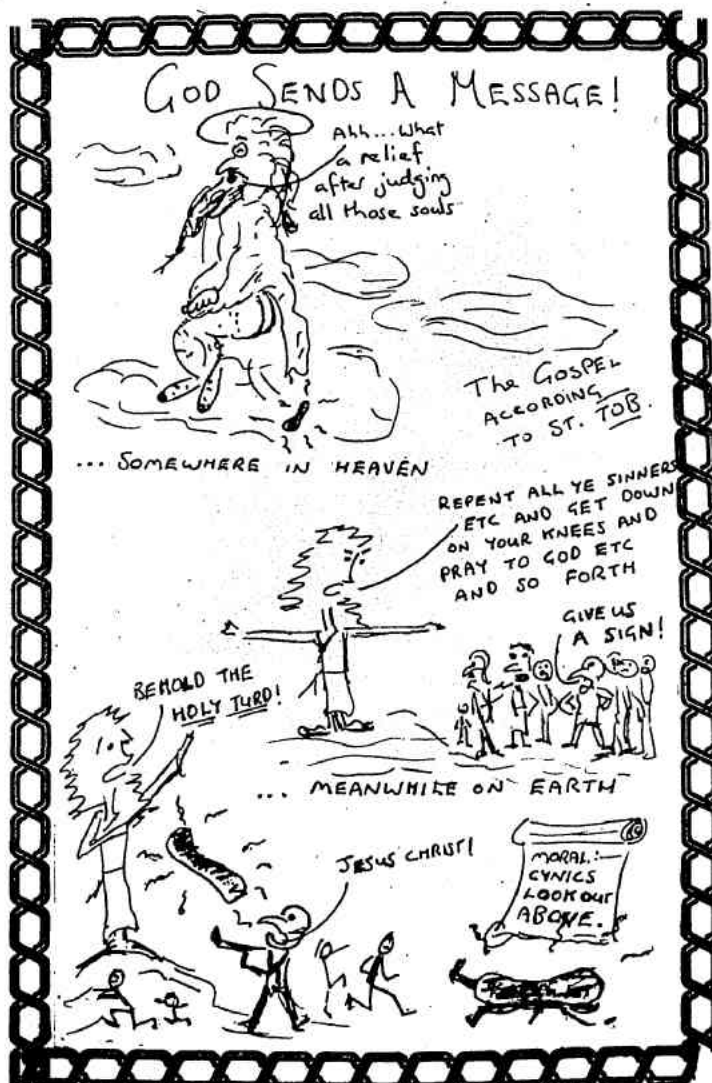 GOD SENDS A MESSAGE!
Ahh...What
a relief
after judging
all those souls
The GOSPEL
ACCORDING
TO ST. TOB.
... SOMEWHERE IN HEAVEN
REPENT ALL YE SINNERS
ETC AND GET DOWN
ON YOUR KNEES AND
PRAY TO GOD ETC
AND SO FORTH
GIVE US
A SIGN!
BEHOLD THE
HOLY TURD!
... MEANWHILE ON EARTH
JESUS CHRIST!
MORAL:—
CYNICS
LOOK OUT
ABOVE.